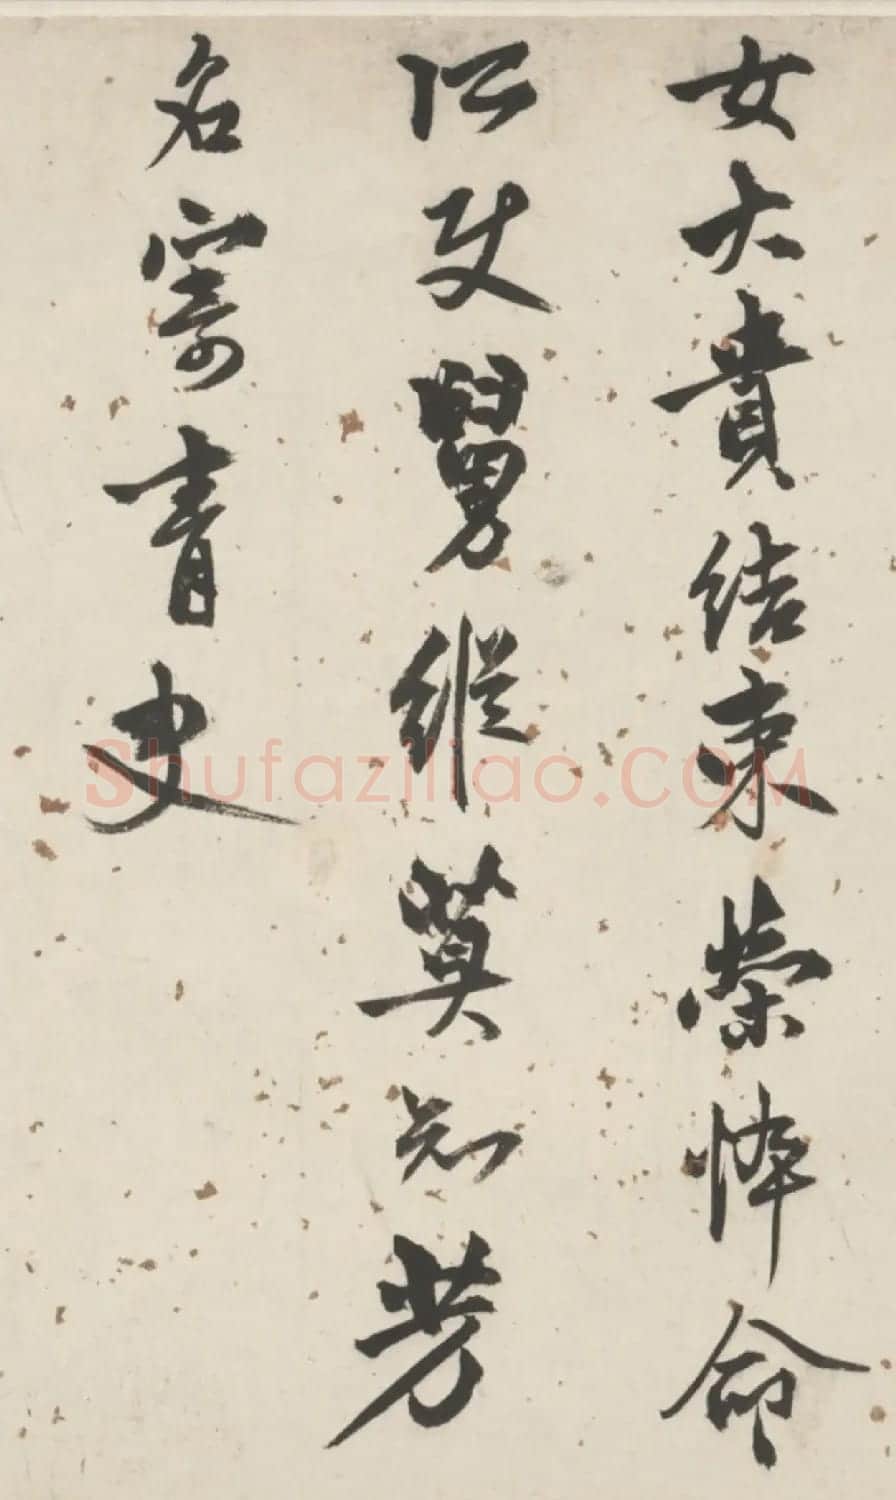 女大貴結束榮悴命
所使舅縱莫知芳
名寄青史
Shufaziliao.COM